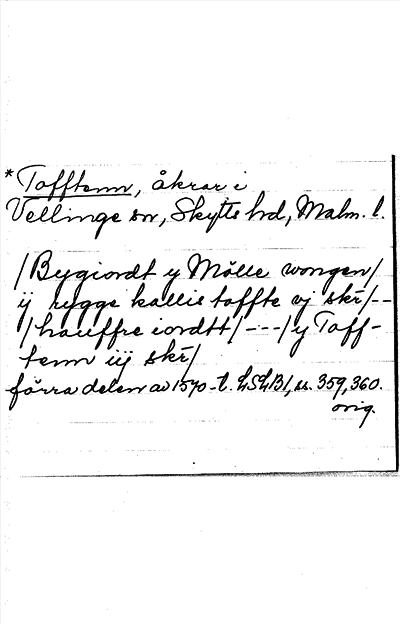 *Tofftenn, åkrar i
Vellinge sn, Skytts hd, Malm. l.
/Bygiordt y Mölle wongen/
ij rygge kallis toffte vj skr̄/--
/hauffre iordtt/---/y Toff-
tenn iij skr̄/
förra delen av 1570-t. LSLB1, ss. 359, 360.
orig.